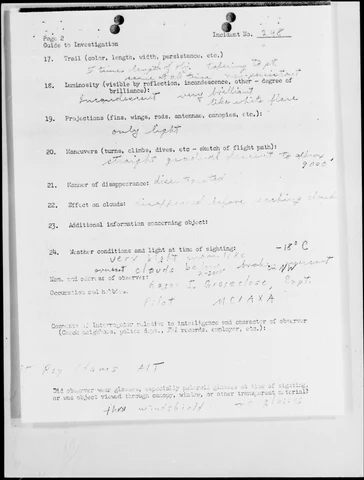 Page 2 Incident No. 248
Guide to Investigation
17. Trail (color, length, width, persistance, etc.)
5 times length of obj. tapering to pt.
same at all times
18. Luminosity (visible by reflection, incondescence, other - degree of
brilliance): very brilliant
Incandescent like white flare
19. Projections (fins, wings, rods, antennae, canopies, etc.):
only light
20. Maneuvers (turns, climbs, dives, etc - sketch of flight path):
straight gradual descent to
9000'
21. Manner of disappearance: disintegrated
22. Effect on clouds: disappeared before reaching cloud
23. Additional information concerning object:
24. Weather conditions and light at time of sighting: -18°C
very light
overcast clouds below broken
Name and address of observer:
Capt.
Occupation and hobbies:
Pilot
Comments of Interrogator relative to intelligence and character of observer
(Check neighbors, police dept., FBI records, employer, etc.):
Did observer wear glasses, especially polaroid glasses at time of sighting,
or was object viewed through canopy, window, or other transparent material?
thru windshield no glasses